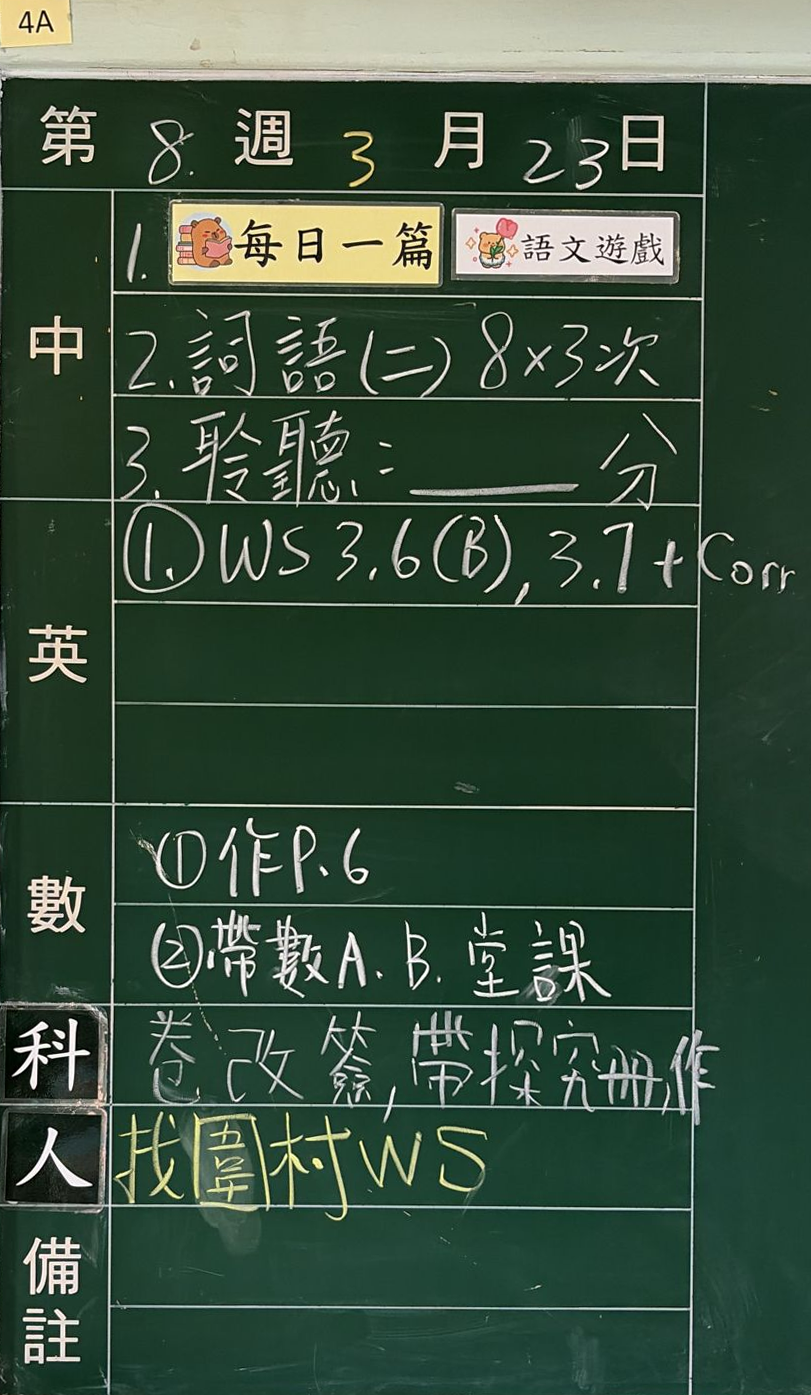 4A
第 8. 週 3 月 23 日
中
1. 每日一篇 語文遊戲
2. 詞語(二) 8×3次
3. 聆聽: ____ 分
英
①. WS 3.6(B), 3.7 + Corr
數
① 作P.6
② 帶數A.B.堂課
科 卷改簽,帶探究冊,作
人 找圍村WS
備註